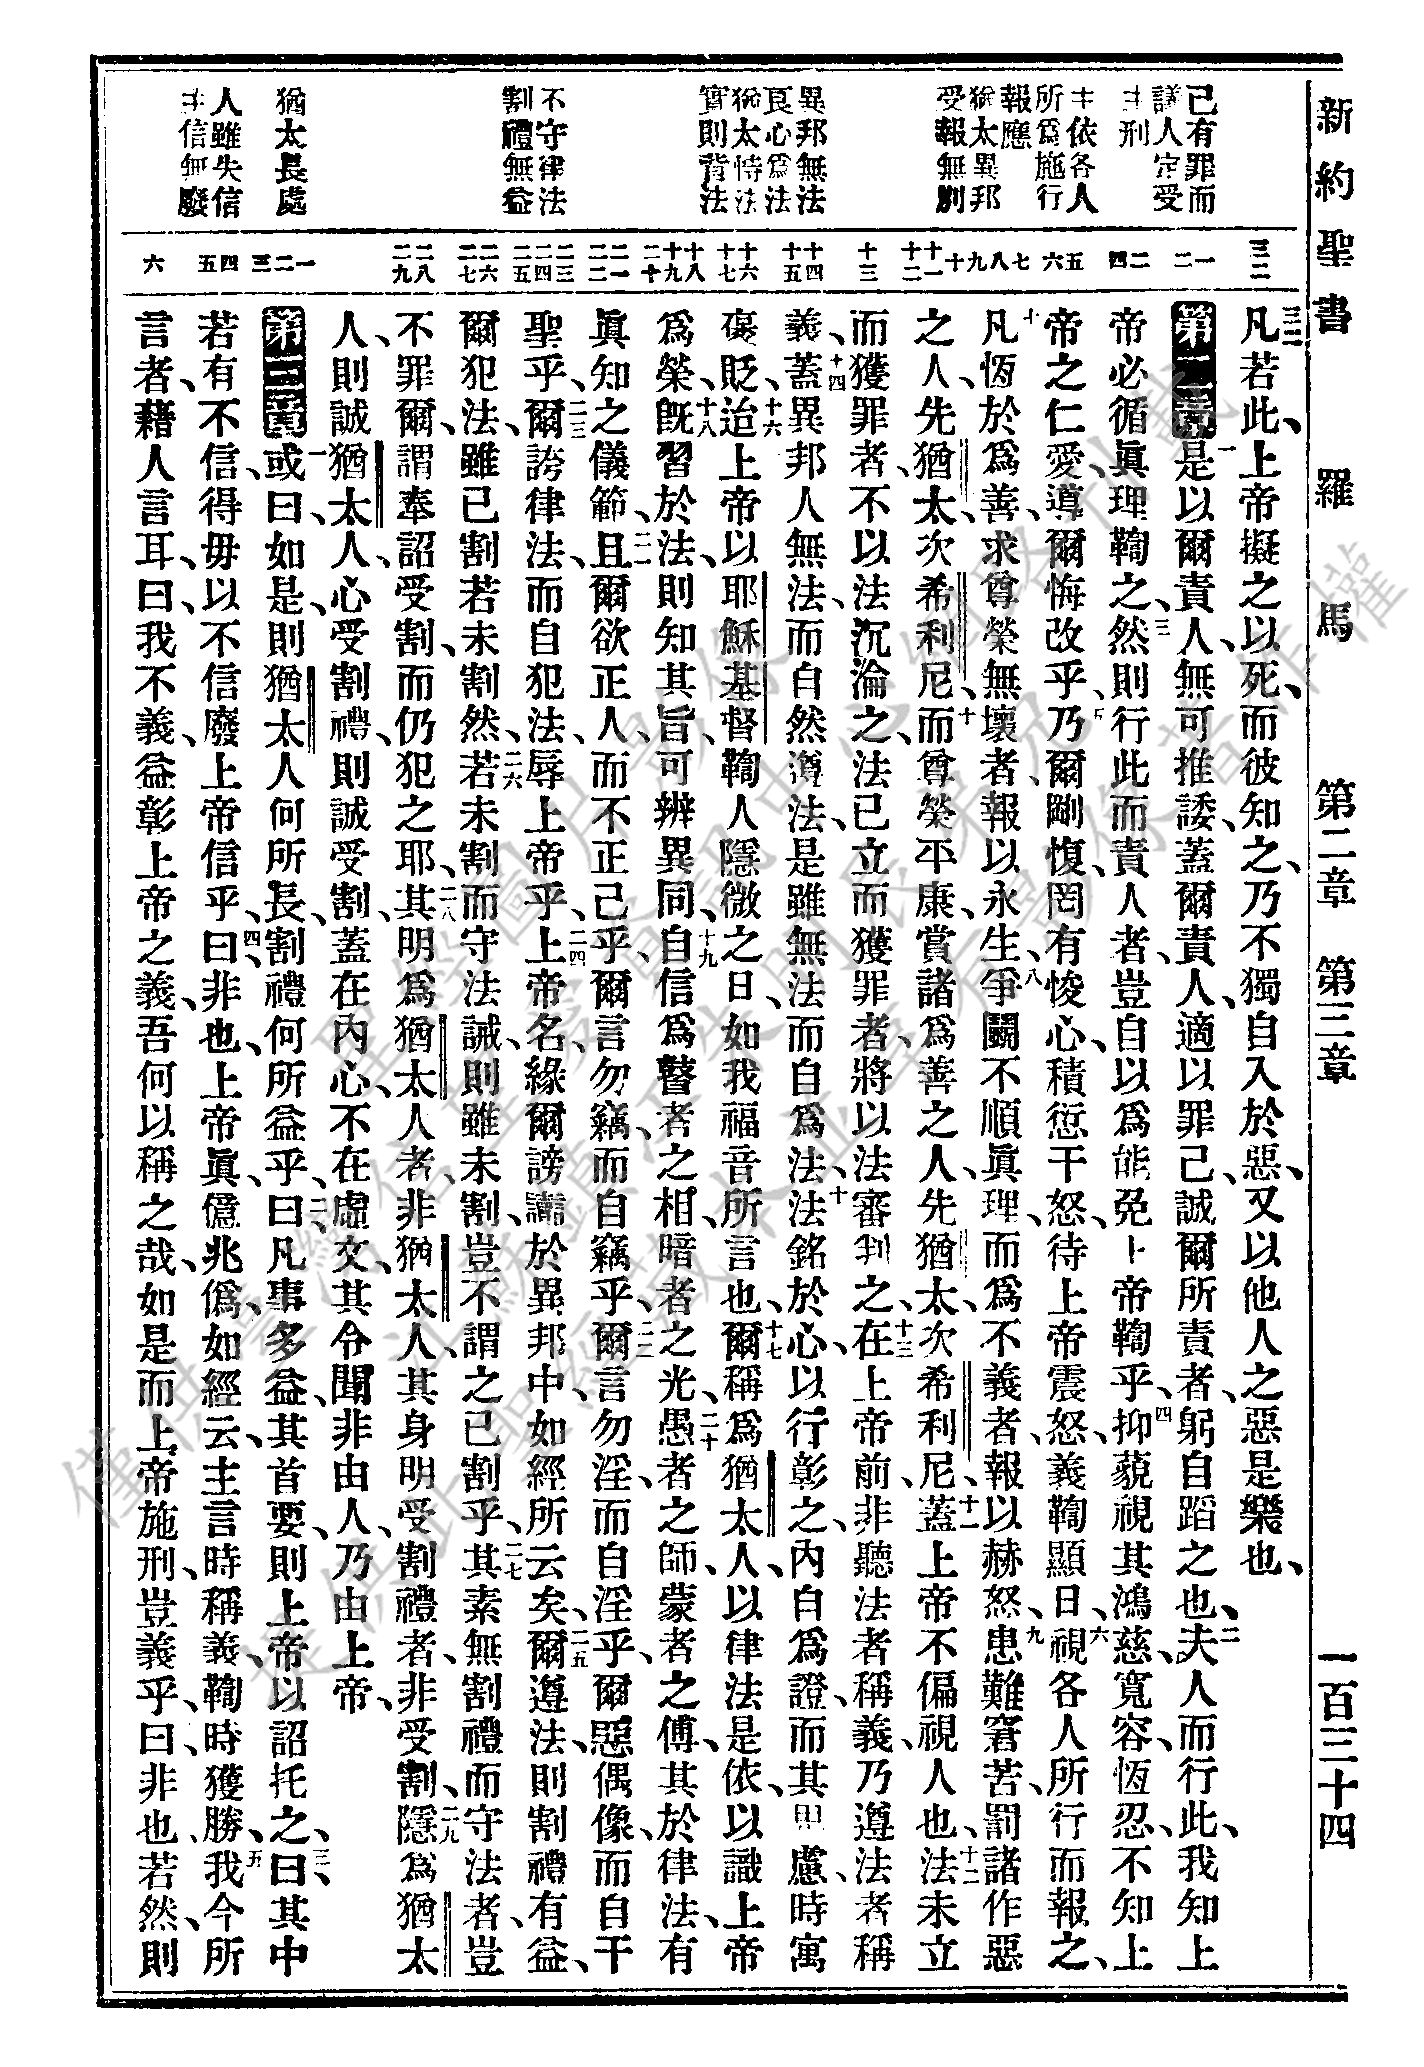 新約聖書　羅馬　第二章　第三章　一百三十四
己有罪而
議人定受
主刑
主依各人
所爲施行
報應
猶太異邦
受報無別
異邦無法
良心爲法
猶太恃法
實則背法
不守律法
割禮無益
猶太長處
人雖失信
主信無廢
三二　一　二　三　四　五　六　七　八　九　十　十一　十二　十三　十四　十五　十六　十七　十八　十九　二十　二一　二二　二三　二四　二五　二六　二七　二八　二九　一　二　三　四　五　六
三二凡若此、上帝擬之以死、而彼知之、乃不獨自入於惡、又以他人之惡是樂也、
第二章一是以爾責人、無可推諉、蓋爾責人、適以罪己、誠爾所責者、躬自蹈之也、二夫人而行此、我知上
帝必循眞理鞫之、三然則行此而責人者、豈自以爲能免上帝鞫乎、四抑藐視其鴻慈、寬容、恆忍、不知上
帝之仁愛、導爾悔改乎、五乃爾剛愎、罔有悛心、積愆干怒、待上帝震怒、義鞫顯日、六視各人所行而報之、
七凡恆於爲善、求尊榮無壞者、報以永生、八爭鬭不順眞理、而爲不義者、報以赫怒、九患難窘苦、罰諸作惡
之人、先猶太、次希利尼、十而尊榮平康、賞諸爲善之人、先猶太、次希利尼、十一蓋上帝不偏視人也、十二法未立
而獲罪者、不以法沉淪之、法已立而獲罪者、將以法審判之、十三在上帝前、非聽法者稱義、乃遵法者稱
義、十四蓋異邦人無法、而自然遵法、是雖無法而自爲法、十五法銘於心、以行彰之、內自爲證、而其思慮、時寓
褒貶、十六迨上帝以耶穌基督鞫人隱微之日、如我福音所言也、十七爾稱爲猶太人、以律法是依、以識上帝
爲榮、十八旣習於法、則知其旨、可辨異同、十九自信爲瞽者之相、暗者之光、二十愚者之師、蒙者之傅、其於律法、有
眞知之儀範、二一且爾欲正人、而不正己乎、爾言勿竊、而自竊乎、二二爾言勿淫、而自淫乎、爾惡偶像、而自干
聖乎、二三爾誇律法、而自犯法、辱上帝乎、二四上帝名、緣爾謗讟於異邦中、如經所云矣、二五爾遵法、則割禮有益、
爾犯法、雖已割若未割然、二六若未割而守法誡、則雖未割、豈不謂之已割乎、二七其素無割禮而守法者、豈
不罪爾、謂奉詔受割、而仍犯之耶、二八其明爲猶太人者、非猶太人、其身明受割禮者、非受割、二九隱爲猶太
人、則誠猶太人、心受割禮、則誠受割、蓋在內心、不在虛文、其令聞非由人、乃由上帝、
第三章一或曰、如是、則猶太人何所長、割禮何所益乎、二曰、凡事多益、其首要、則上帝以詔托之、三曰、其中
若有不信、得毋以不信廢上帝信乎、四曰、非也、上帝眞、億兆僞、如經云、主言時稱義、鞫時獲勝、五我今所
言者、藉人言耳、曰、我不義、益彰上帝之義、吾何以稱之哉、如是而上帝施刑、豈義乎、曰、非也、六若然、則